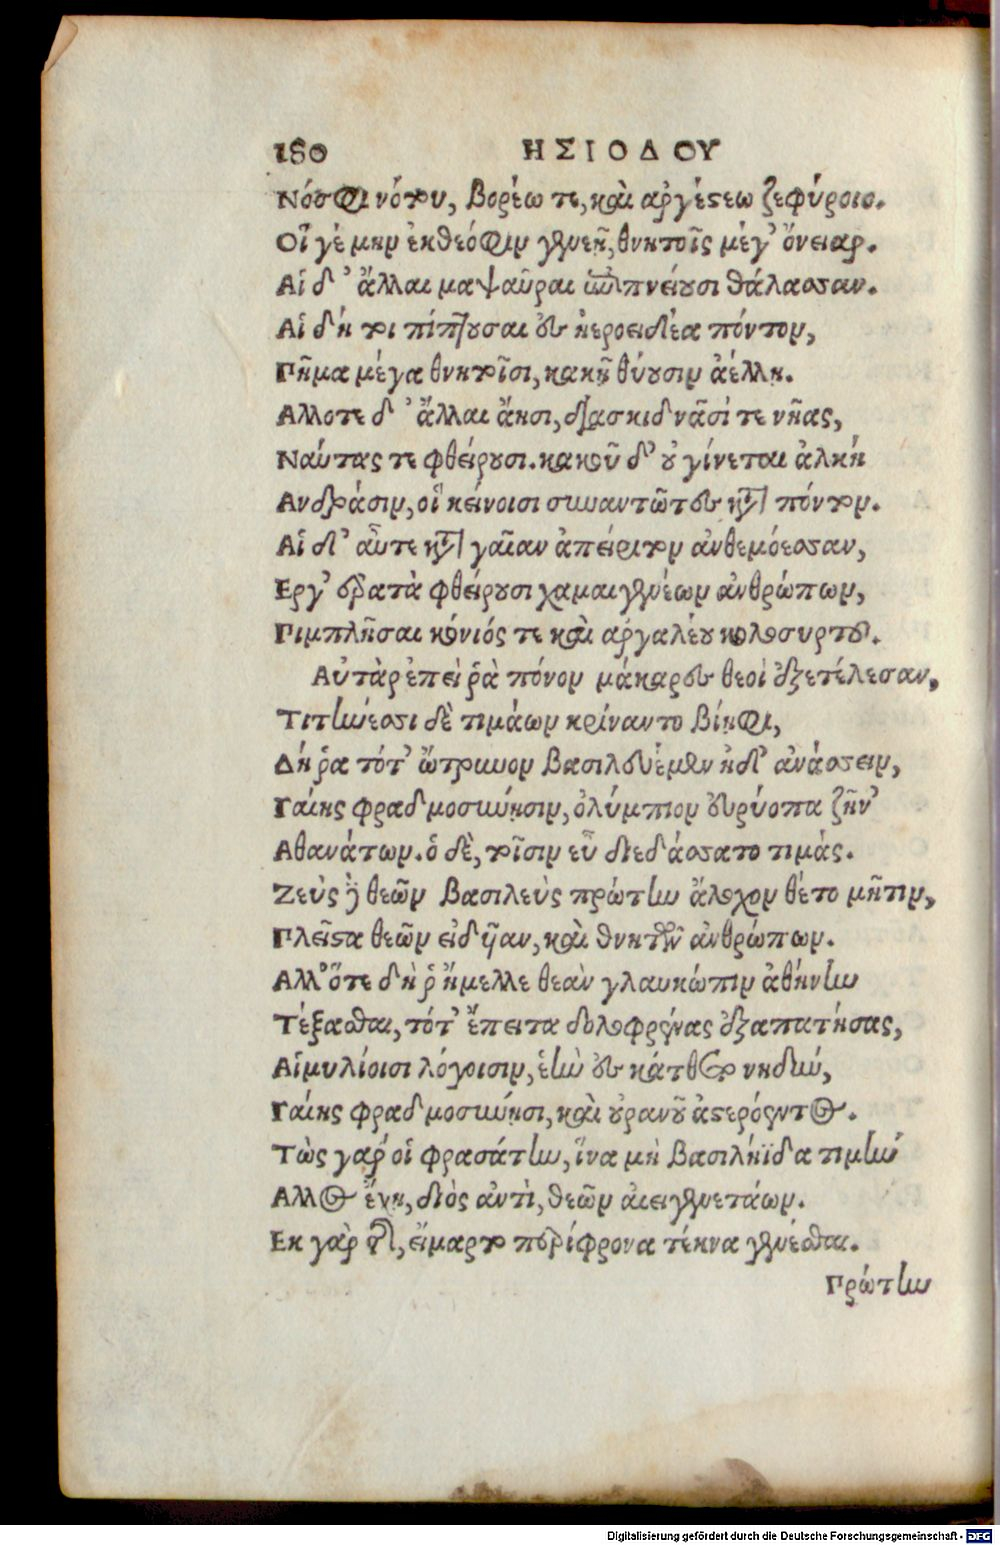 180 ΗΣΙΟΔΟΥ
Νόσφι νότου, βορέω τε, καὶ ἀργέστεω ζεφύροιο.
Οἵ γέ μην ἐκ θεόφιν γενεὴ, θνητοῖς μέγ' ὄνειαρ.
Αἱ δ' ἄλλαι μαψαῦραι ἐπιπνείουσι θάλασσαν.
Αἱ δή τοι πίπτουσαι ἐς ἠεροειδέα πόντον,
Πῆμα μέγα θνητοῖσι, κακῇ θύουσιν ἀέλλῃ.
Αλλοτε δ' ἄλλαι ἄησι, διασκιδνᾶσί τε νῆας,
Ναύτας τε φθείρουσι. κακοῦ δ' οὐ γίνεται ἀλκὴ
Ανδράσιν, οἳ κείνοισι συναντῶτες κατὰ πόντον.
Αἱ δ' αὖτε κατὰ γαῖαν ἀπείριτον ἀνθεμόεσσαν,
Εργ' ἐρατὰ φθείρουσι χαμαιγενέων ἀνθρώπων,
Πιμπλῆσαι κόνιός τε καὶ ἀργαλέου κολοσυρτοῦ.
Αὐτὰρ ἐπεὶ ῥὰ πόνον μάκαρες θεοὶ ἐξετέλεσαν,
Τιτήνεσσι δὲ τιμάων κρίναντο βίηφι,
Δή ῥα τότ' ὤτρυνον βασιλευέμεν ἠδ' ἀνάσσειν,
Γαίης φραδμοσύνησιν, ὀλύμπιον εὐρύοπα ζῆν'
Αθανάτων. ὁ δὲ, τοῖσιν εὖ διεδάσσατο τιμάς.
Ζεὺς δὲ θεῶν βασιλεὺς πρώτην ἄλοχον θέτο μῆτιν,
Πλεῖστα θεῶν εἰδυῖαν, καὶ θνητῶν ἀνθρώπων.
Αλλ' ὅτε δὴ ῥ' ἤμελλε θεὰν γλαυκώπιν ἀθήνην
Τέξασθαι, τότ' ἔπειτα δόλῳ φρένας ἐξαπατήσας,
Αἱμυλίοισι λόγοισιν, ἑὴν ἐς κάτθετο νηδύν,
Γαίης φραδμοσύνησι, καὶ οὐρανοῦ ἀστερόεντος.
Τὼς γάρ οἱ φρασάτην, ἵνα μὴ βασιληίδα τιμὴν
Αλλος ἔχῃ, διὸς ἀντὶ, θεῶν ἀειγενετάων.
Εκ γὰρ τῆς, εἵμαρτο περίφρονα τέκνα γενέσθαι.
Πρώτην
Digitalisierung gefördert durch die Deutsche Forschungsgemeinschaft - DFG